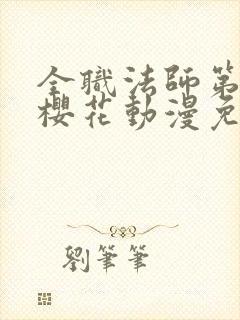 全職法師第
櫻花動漫免
劉筆筆